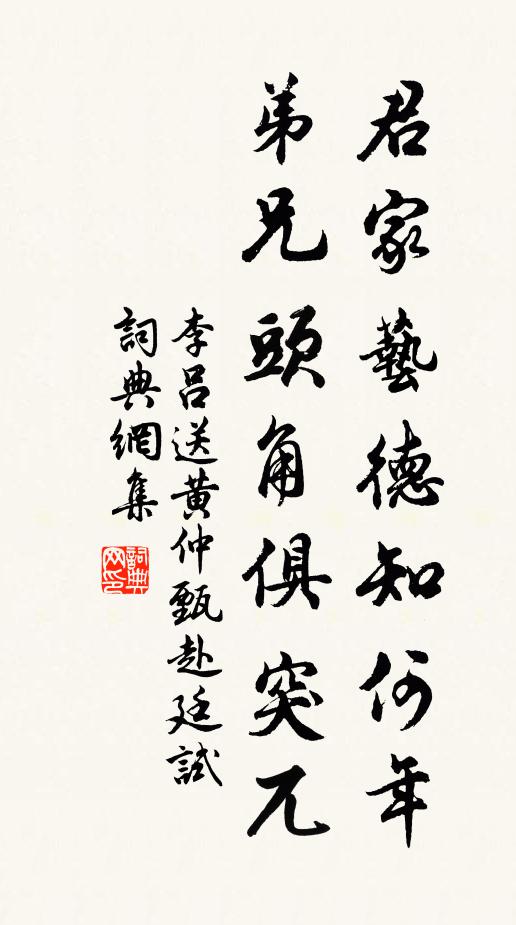 君家藝德知何年
弟兄頭角俱突兀
李呂送黃仲甄赴廷試
詞典網集
詞典网印